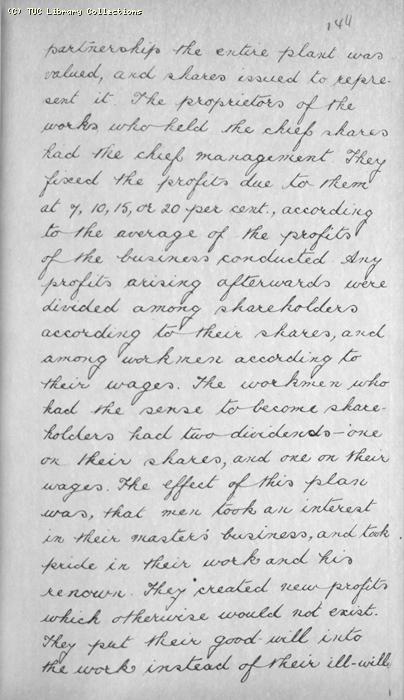 (C) TUC Library Collections
144
partnership the entire plant was
valued, and shares issued to repre-
sent it. The proprietors of the
works who held the chief shares
had the chief management. They
fixed the profits due to them
at 7, 10, 15, or 20 per cent., according
to the average of the profits
of the business conducted Any
profits arising afterwards were
divided among shareholders
according to their shares, and
among workmen according to
their wages. The workmen who
had the sense to become share-
holders had two dividends—one
on their shares, and one on their
wages. The effect of this plan
was, that men took an interest
in their master's business, and took
pride in their work and his
renown. They created new profits
which otherwise would not exist.
They put their good-will into
the work instead of their ill-will